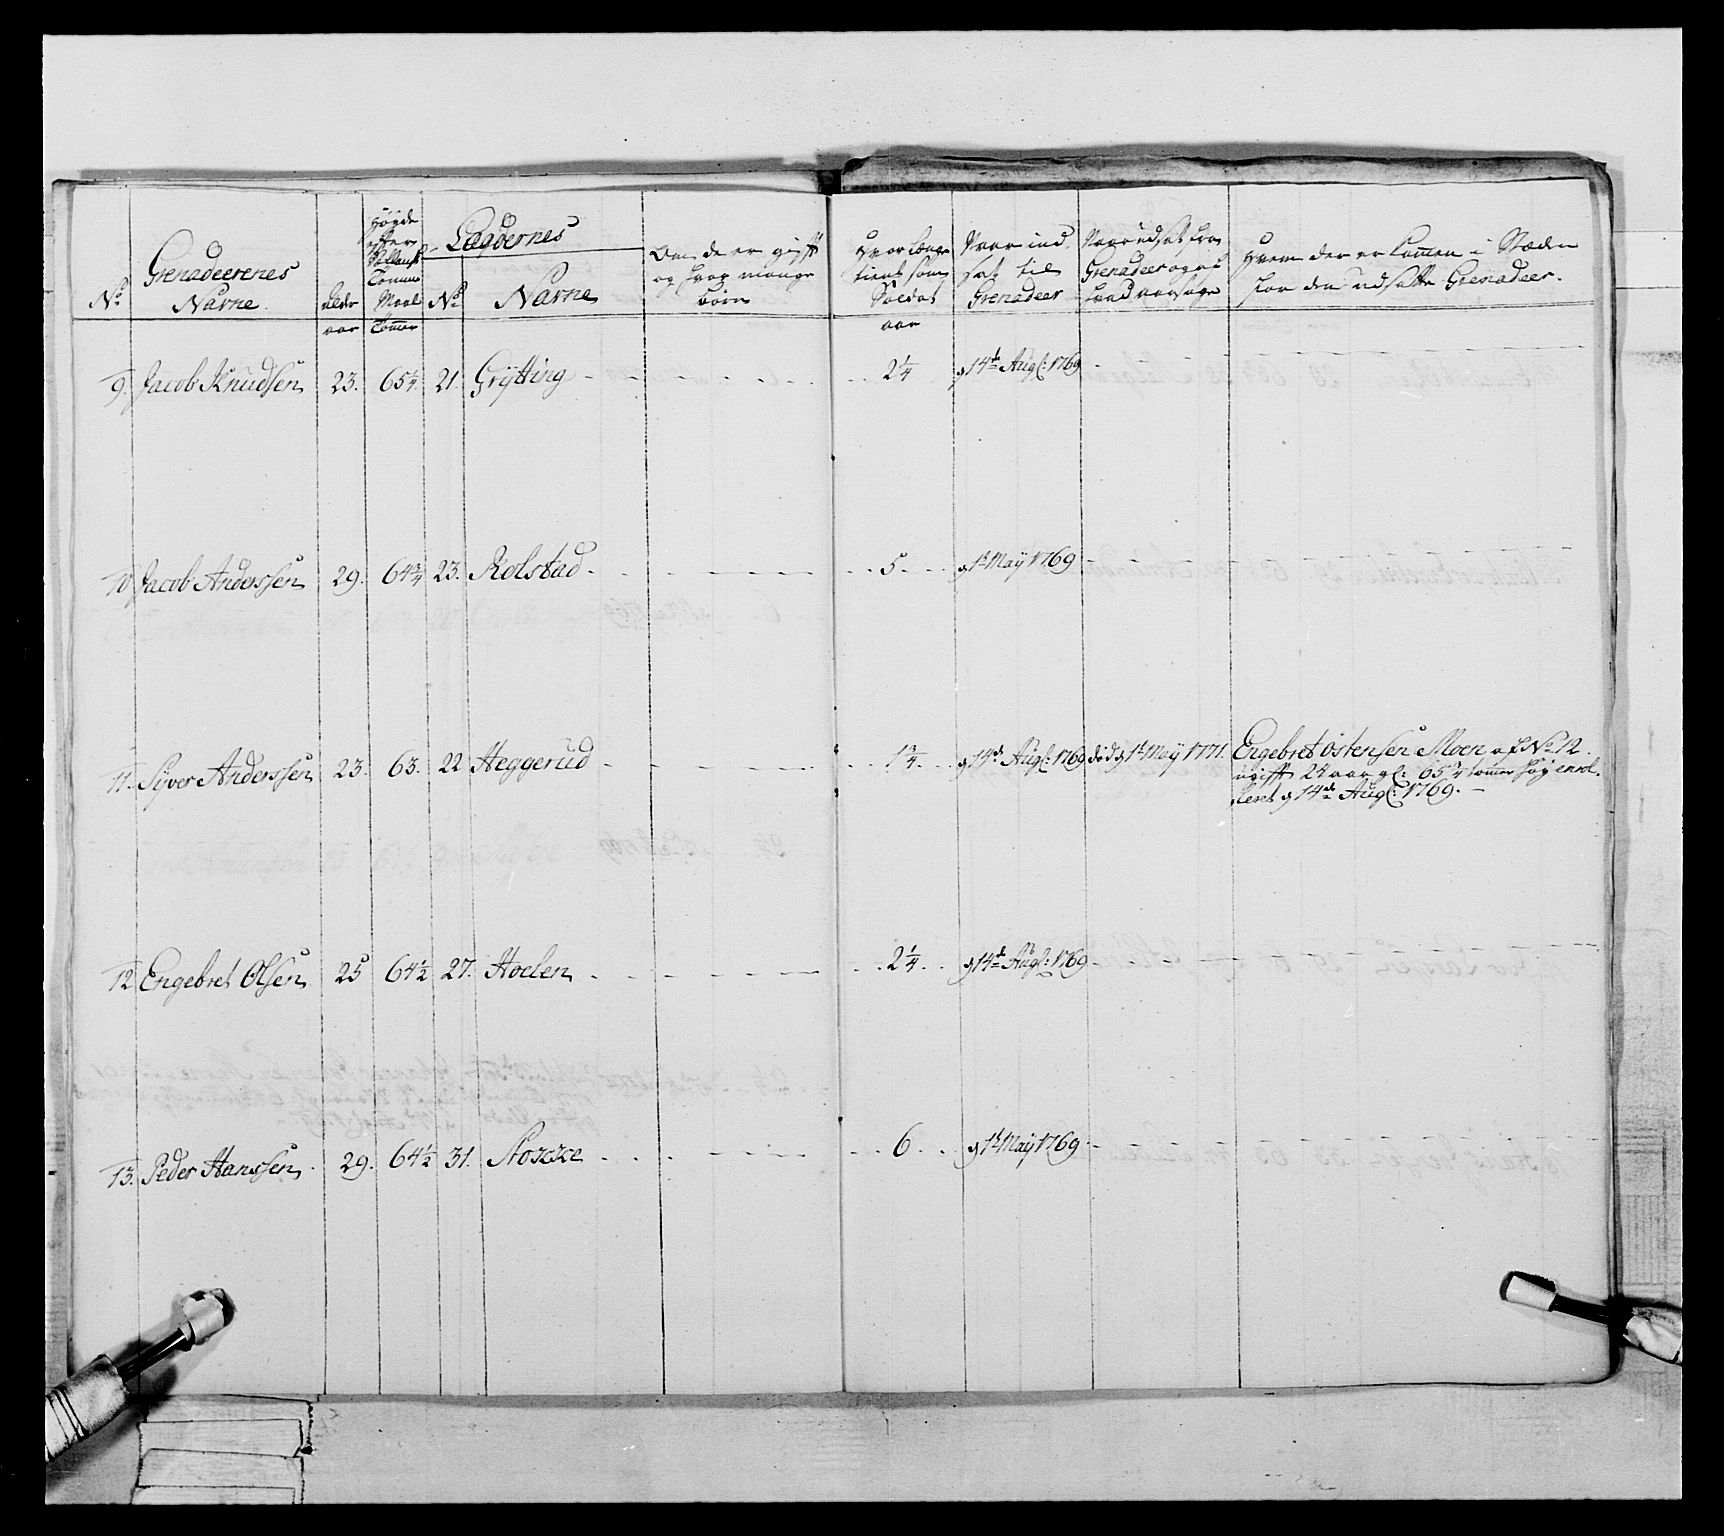 No
Grenadeerenes
Navne.
Alder
aar
Høyde
efter
Hollansk
Tomme
Maal
Tommer
Lægdernes
No
Navne
Om de er gift
og hvor mange
børn
Hvor længe
tient som
Soldat
aar
Naar ind-
sat til
Grenadeer
Naar udsat fra
Grenadeer og af
hvad aarsage
Hvem der er kommen i Stæden
for den udsatte Grenadeer.
9. Jacob Knudsen 23. 65¼. 21. Grÿtting 2¼ d 14de Aug: 1769
10 Jacob Anderssen 29. 64¾ 23. Rolstad 5 d 1te Maÿ 1769
11. Syver Anderssen 23. 63. 22 Heggerud 1¾ d 14de Aug: 1769 død d 1te Maÿ 1771. Engebret Østensen Moen af No 12.
ugift 24 aar gl: 65¼ tomer høy enrol-
leret d 14de Aug: 1769.
12 Engebret Olsen 25 64½ 27. Hoelen 2¼ d 14de Aug: 1769
13. Peder Hanssen 29. 64½ 31. 6 d 1te Maÿ 1769